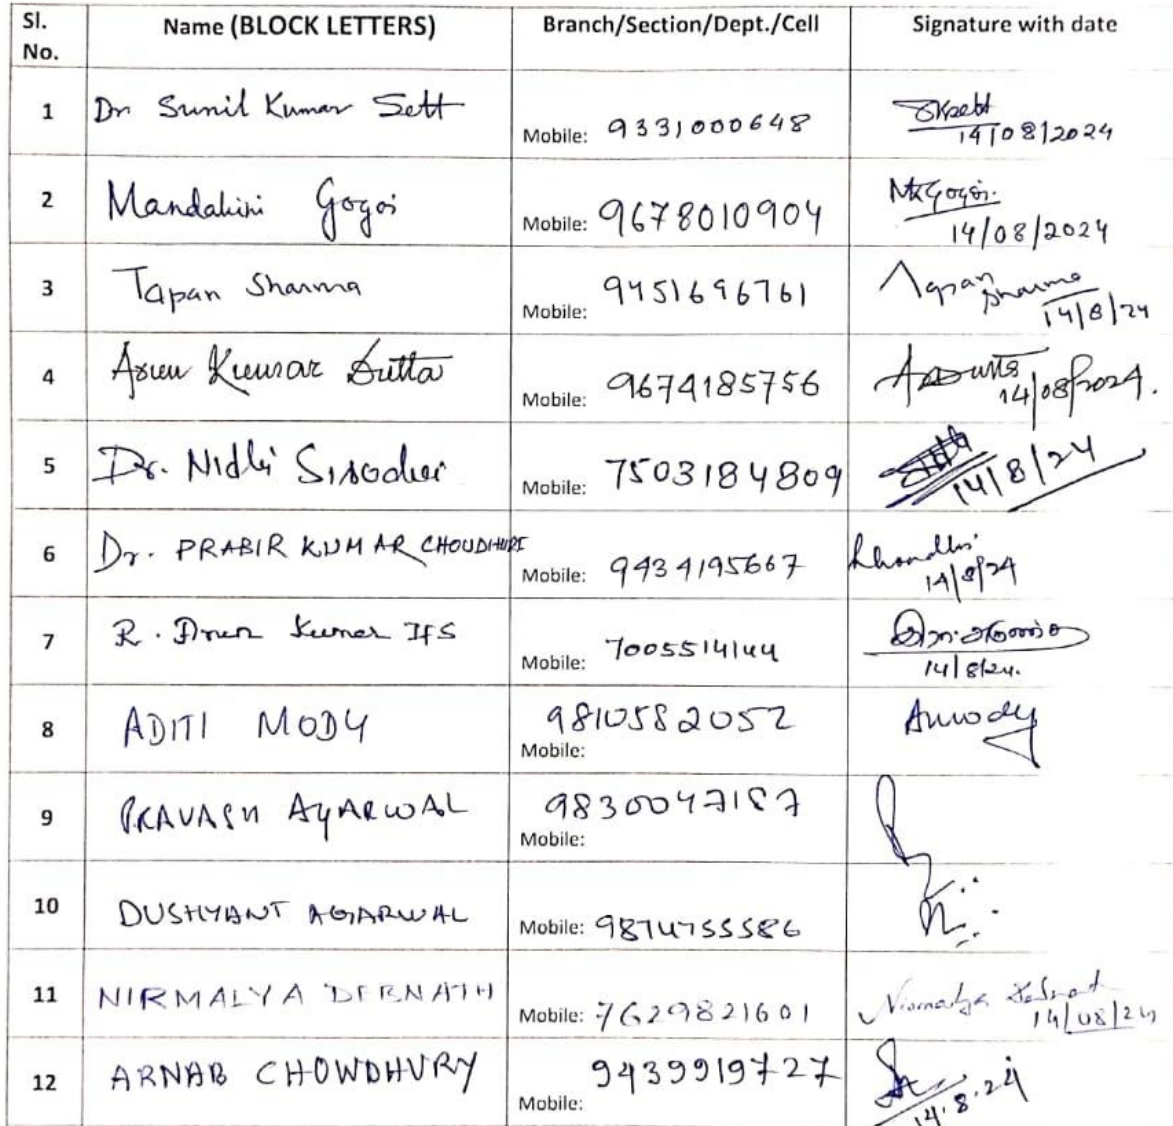 Sl. No. Name (BLOCK LETTERS) Branch/Section/Dept./Cell Signature with date
1 Dr Sunil Kumar Sett Mobile: 9331000648 SKSett 14/08/2024
2 Mandakini Gogoi Mobile: 9678010904 MKGogoi. 14/08/2024
3 Tapan Sharma Mobile: 9451696761 Tapan Sharma 14/8/24
4 Arun Kumar Dutta Mobile: 9674185756 AKDutta 14/08/2024.
5 Dr. Nidhi Sisodia Mobile: 7503184809 14/8/24
6 Dr. PRABIR KUMAR CHOUDHURI Mobile: 9434195667 14/8/24
7 R. Arun Kumar IFS Mobile: 7005514144 14/8/24.
8 ADITI MODY Mobile: 9810582052 Amody
9 PRAVASH AGARWAL Mobile: 9830047187
10 DUSHYANT AGARWAL Mobile: 9874755586
11 NIRMALYA DEBNATH Mobile: 7629821601 Nirmalya Debnath 14/08/24
12 ARNAB CHOWDHURY Mobile: 9439919727 14.8.24